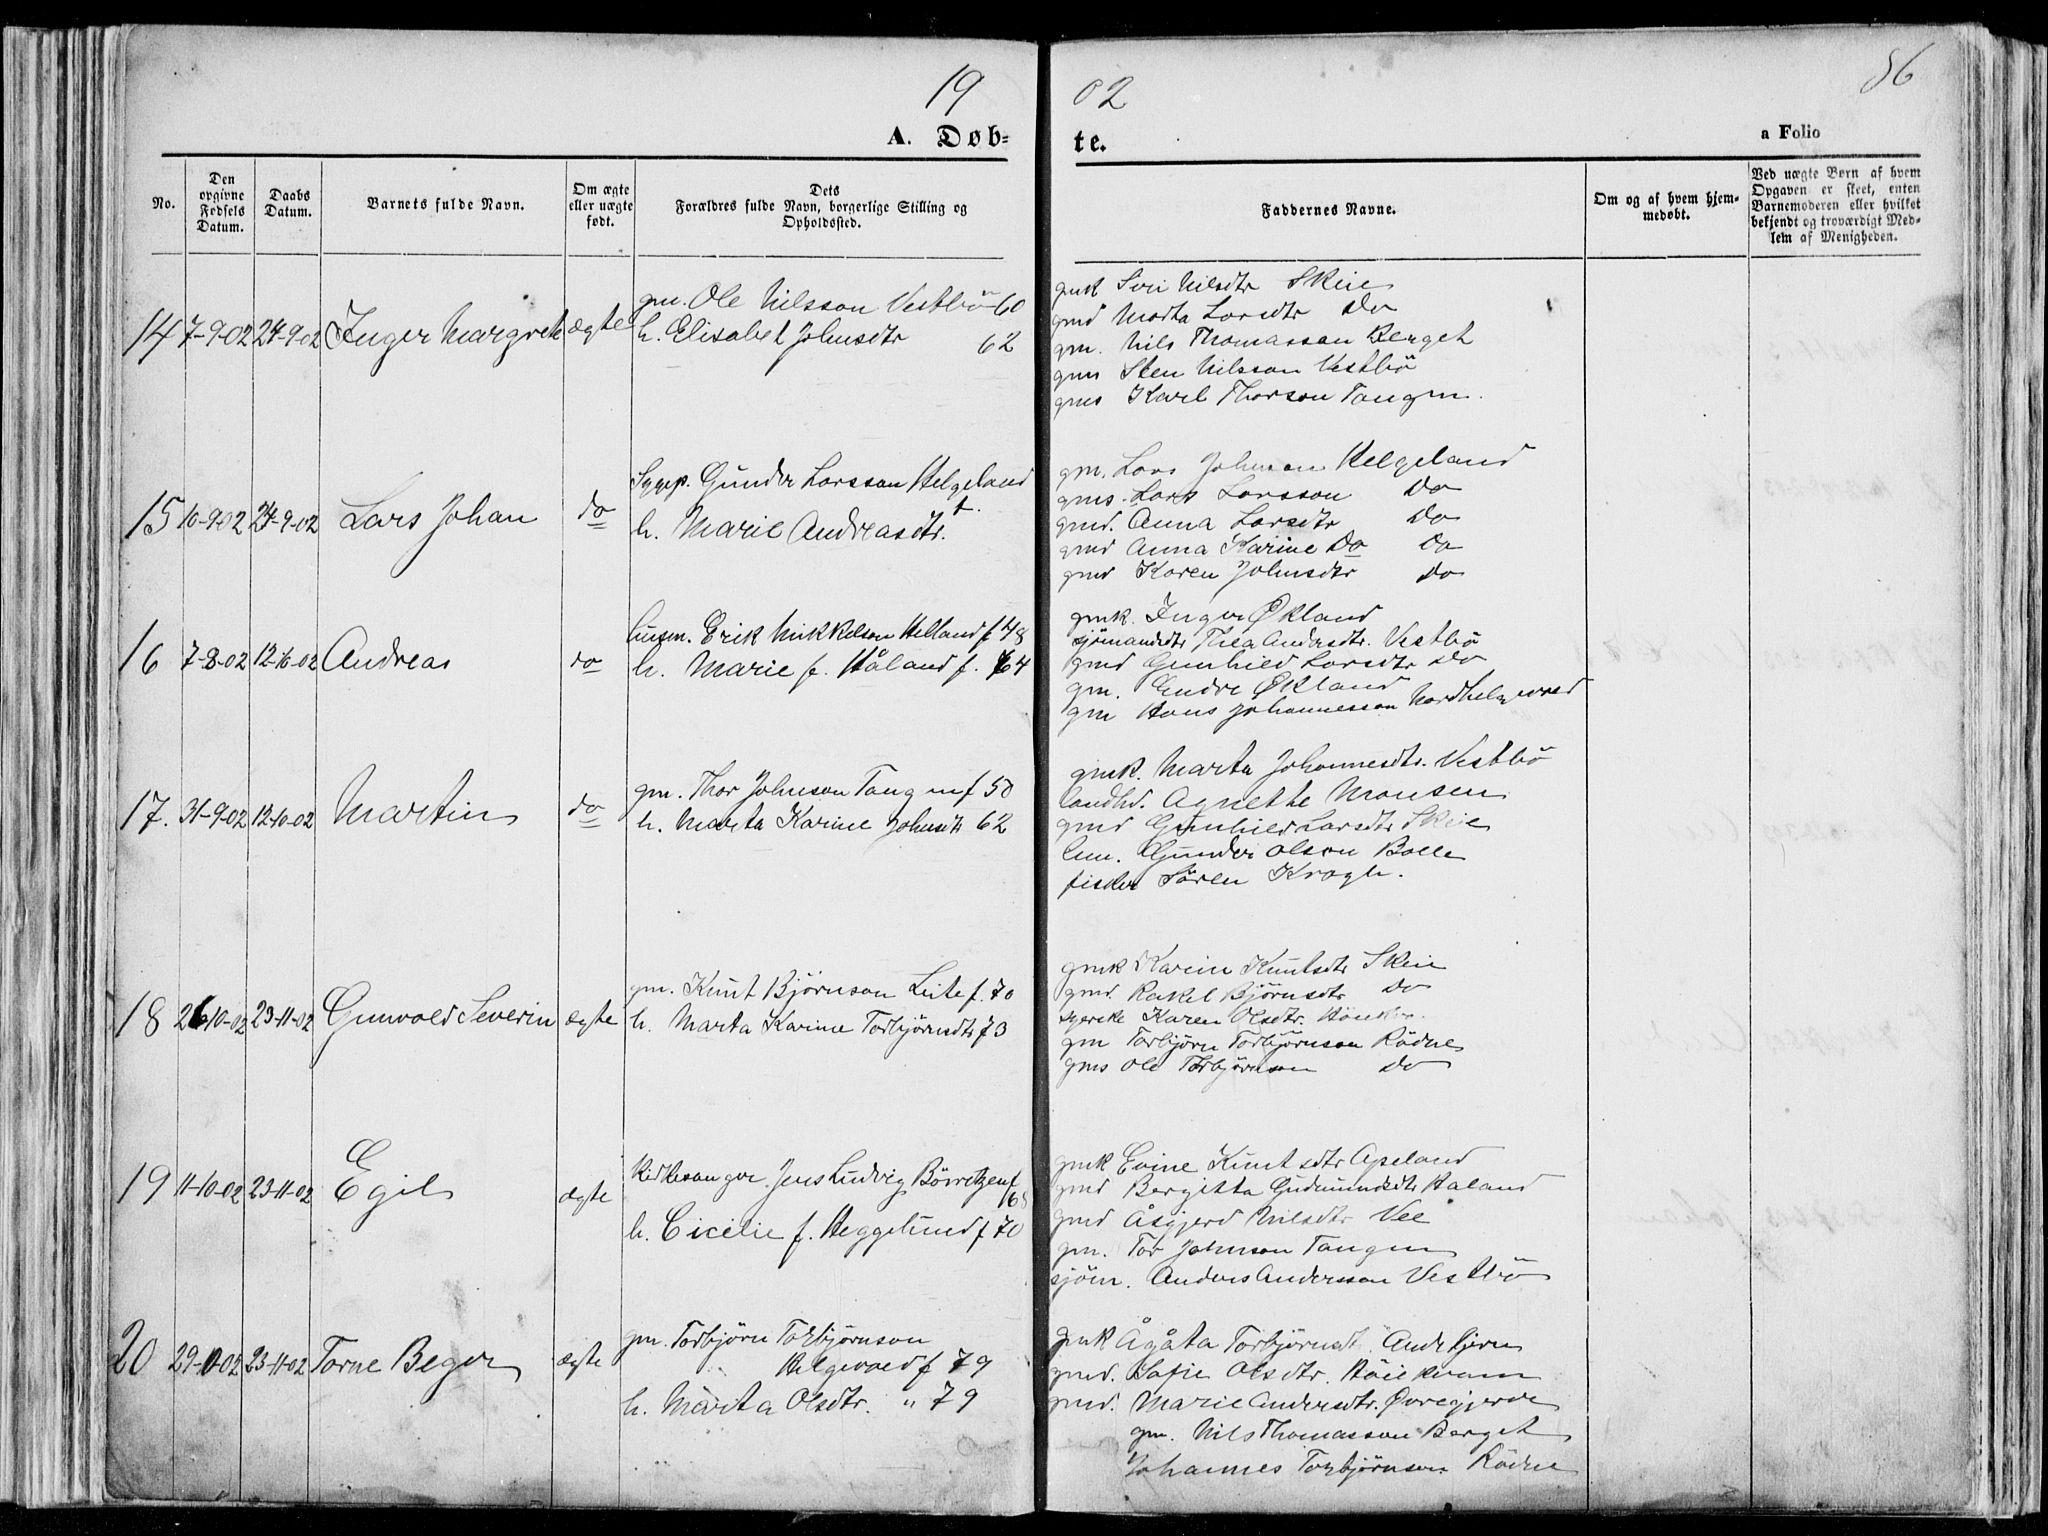 19 02 86
A. Døb-te. a Folio
No. Den opgivne Fødsels Datum. Daabs Datum. Barnets fulde Navn. Om ægte eller uægte født. Dets Forældres fulde Navn, borgerlige Stilling og Opholdssted. Faddernes Navne. Om og af hvem hjemmedøbt. Ved uægte Børn af hvem Opgaven er skeet, enten Barnemoderen eller hvilket bekjendt og troværdigt Medlem af Menigheden.
14 7-9-02 24-9-02 Inger Margrete ægte
gm. Ole Nilsson Vestbö 60
h. Elisabet Johnsdtr 62
gmk Siri Nilsdtr Skeie
gmd Marta Larsdtr Do
gm. Nils Thomasson Berget
gms Sten Nilsson Vestbö
gms Karl Thorson Tangen.
15 10-9-02 24-9-02 Lars Johan do
Gunder Larsson Helgeland †.
h. Marie Andreasdtr.
gm. Lars Johnson Helgeland
gms. Lars Larsson Do
gmd. Anna Larsdtr Do
gmd Anna Karine Do Do
gmd Karen Johnsdtr Do
16 7-8-02 12-10-02 Andreas do
husm. Erik Mikkelson Helland f 48
h. Marie f. Håland f. 64
gmk. Inger Økland
sjömandsdtr Thea Andersdtr. Vestbö
gmd Gunhild Larsdtr Do
gm. Endre Økland
gm Hans Johannesson
17. 31-9-02 12-10-02 Martin do
gm. Thor Johnson Tangen f 50
h. Marta Karine Johnsdtr 62
gmk. Marta Johannesdtr. Vestbö
landhd. Agnette Monsen
gmd Gunhild Larsdtr Skeie
Gunder Olson Bolle
fisker Sören Krogh.
18 26-10-02 23-11-02 Gunvald Severin ægte
gm. Knut Björnson Leite f. 70
h. Marta Karine Torbjörnsdtr 73
gmk Karin Knutsdtr Skeie
gmd. Rakel Björnsdtr Do
syerske Karen Olsdtr.
gm Torbjörn Torbjörnson Rödne
gms Ole Torbjörnson Do
19 11-10-02 23-11-02 Egil ægte
Kirkesanger. Jens Ludvig Börretzen f 68
h. Cicelie f. Heggelund f 70
gmk Evine Knutsdtr Apeland
gmd Bergitta Gudmundsdtr Håland
gmd Åsgjerd Nilsdtr Vee
gm. Tor Johnson Tangen
sjöm. Anders Andersson Vestbö
20 29-10-02 23-11-02 Torne Beger ægte
gm. Torbjörn Torbjörnson
Helgevold f 79
h. Marta Olsdtr. " 79
gmk Ågåta Torbjörnsdt.
gmd. Sofie Olsdtr. Höiekvam
gmd. Marie Andersdtr. Øvregjerde
gm. Nils Thomasson Berget
Johannes Torbjörnson Rödne